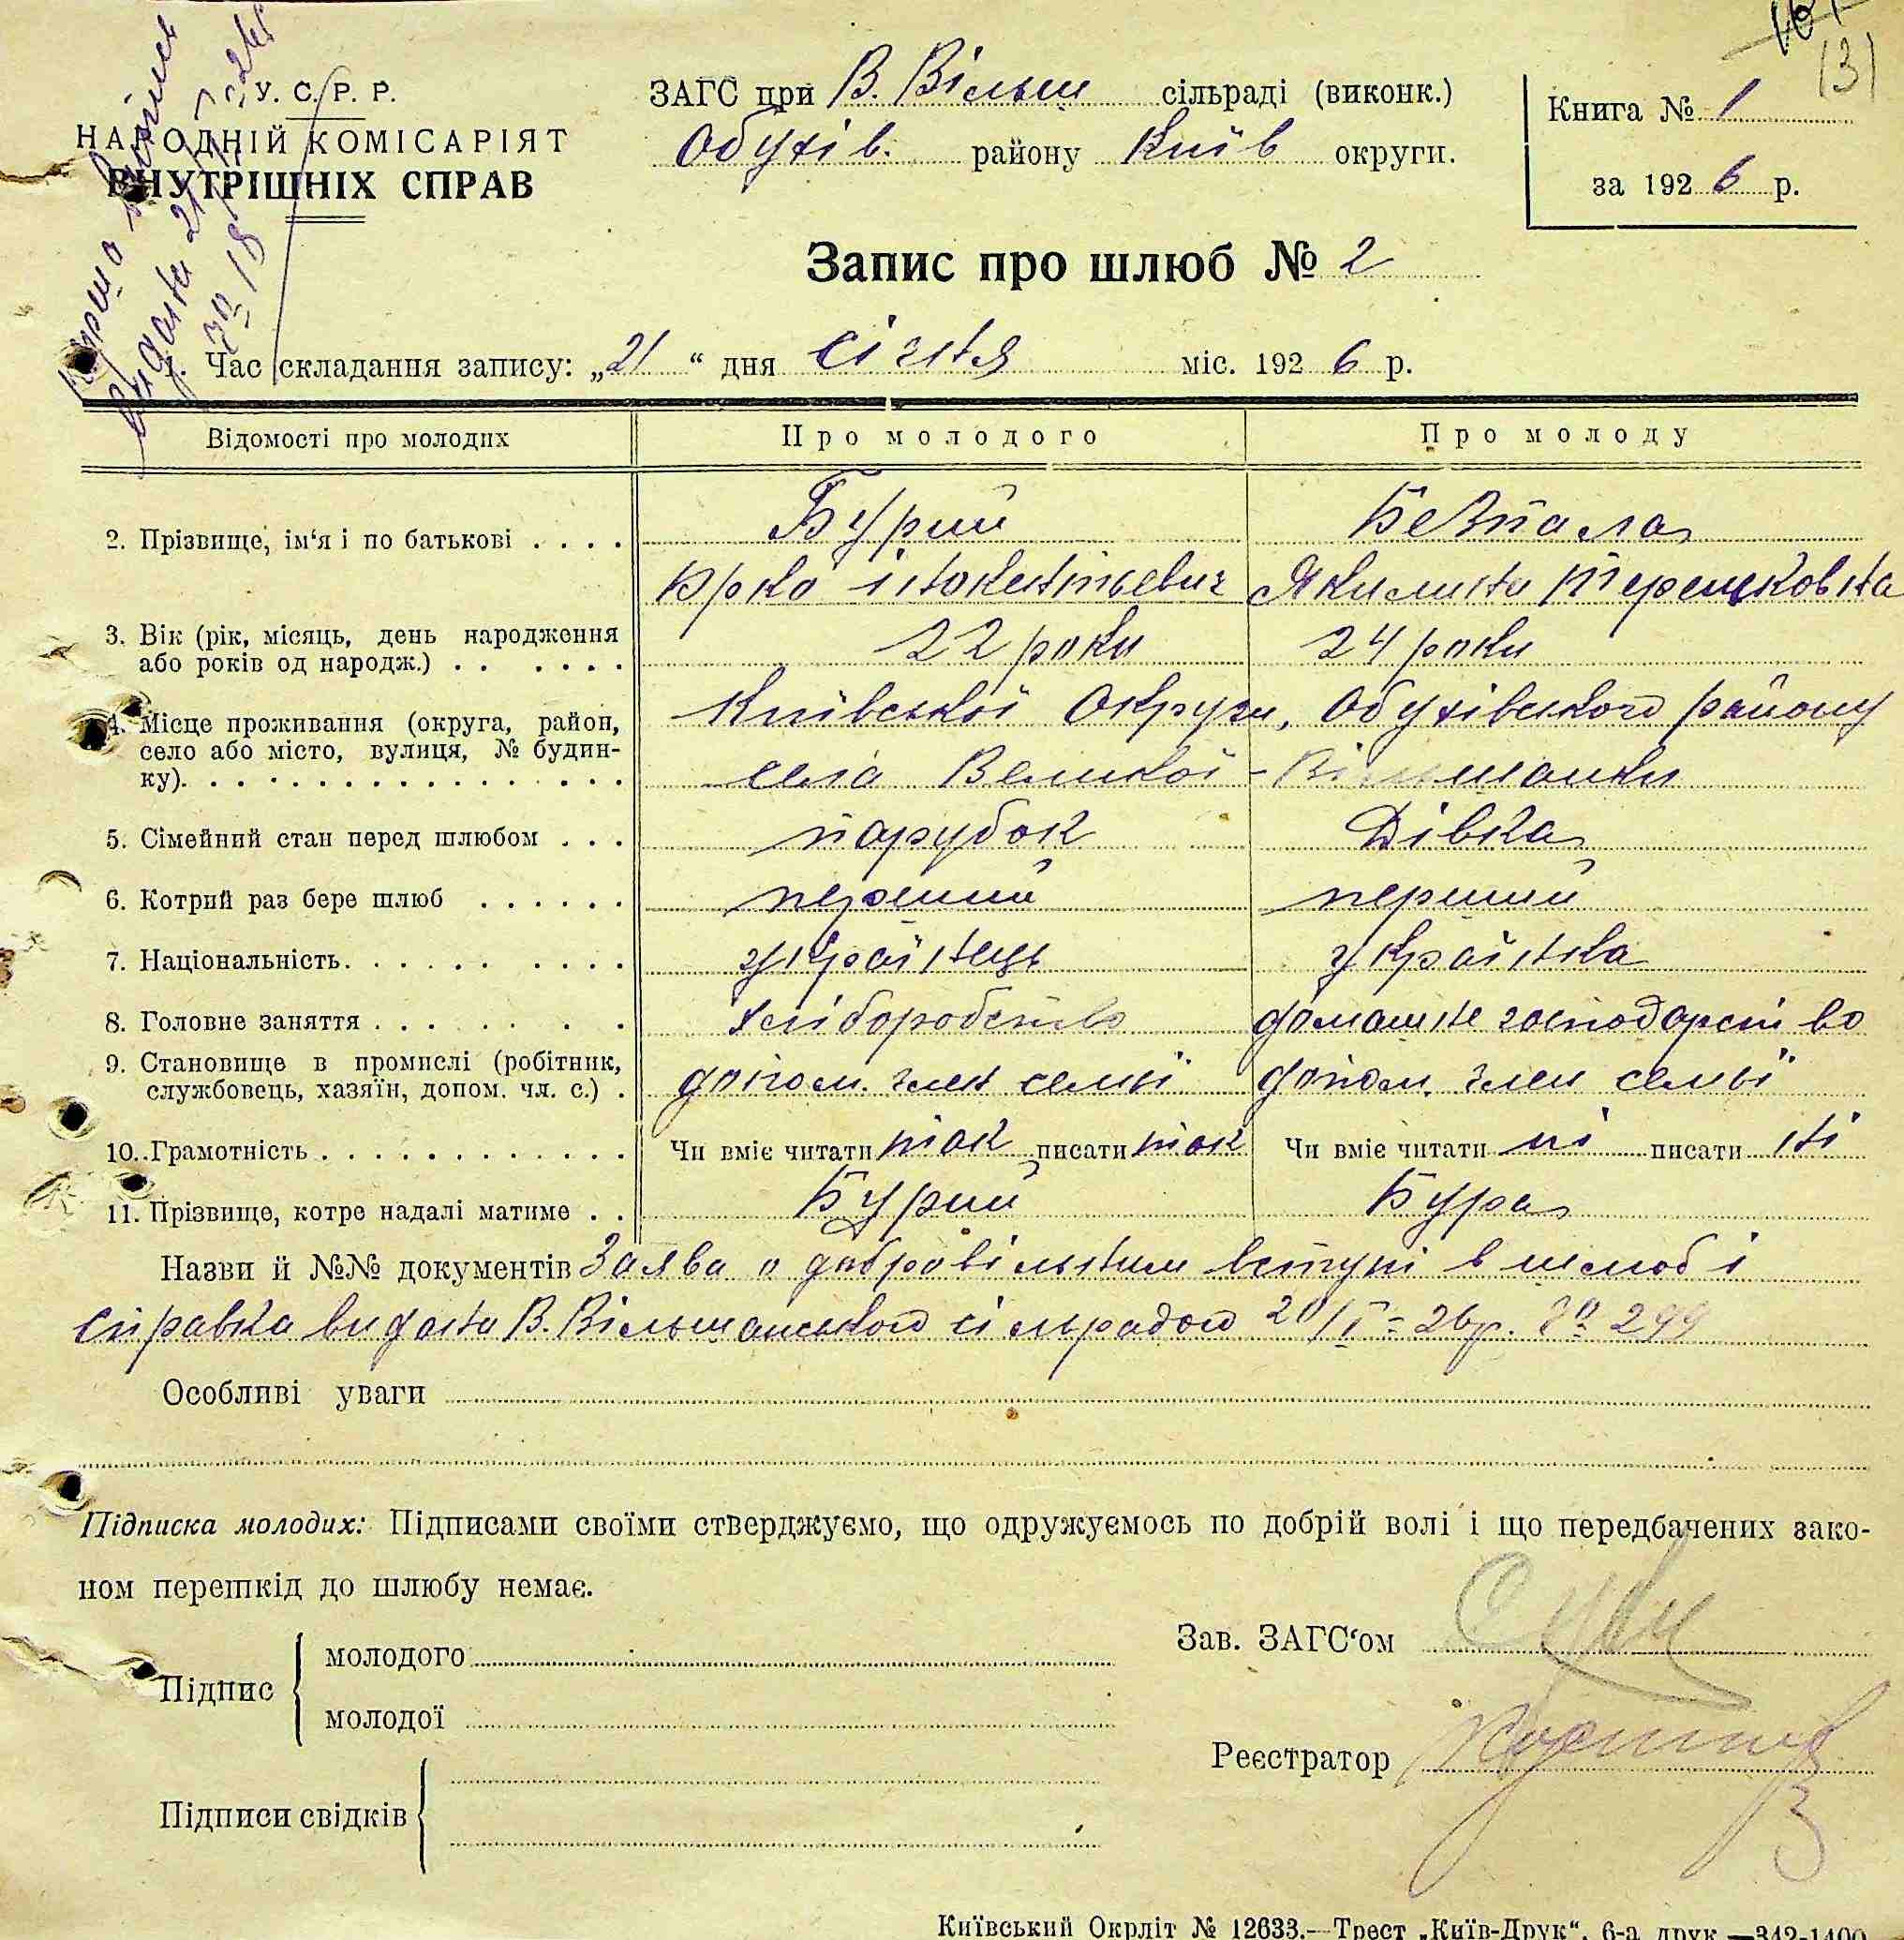 131
У. С. Р. Р.
НАРОДНІЙ КОМІСАРІЯТ
ВНУТРІШНІХ СПРАВ
Перша випись
видана 21/I 26 р.
№ 18
ЗАГС при В. Вільш сільраді (виконк.)
Обухів. району Київ округи.
Книга № 1
за 1926 р.
Запис про шлюб № 2
1. Час складання запису: „21“ дня січня міс. 1926 р.
Відомості про молодих Про молодого Про молоду
2. Прізвище, ім‘я і по батькові . . . . Бурий Безпала
Юрко Інокентієвич Якилина Терешковна
3. Вік (рік, місяць, день народження або років од народж.) . . . . . . 22 роки 24 роки
4. Місце проживання (округа, район, село або місто, вулиця, № будинку). Київської Округи, Обухівського району
села Великої-Вільшанки
5. Сімейний стан перед шлюбом . . . парубок Дівка
6. Котрий раз бере шлюб . . . . . . перший перший
7. Національність. . . . . . . . . . українець українка
8. Головне заняття . . . . . . . хліборобство домашнє господарство
9. Становище в промислі (робітник, службовець, хазяїн, допом. чл. с.) . допом. член семьї допом. член семьї
10. Грамотність . . . . . . . . . . . . Чи вміє читати так писати так Чи вміє читати ні писати ні
11. Прізвище, котре надалі матиме . . Бурий Бура
Назви й №№ документів Заява о добровільним вступі в шлюб і
справка видана В. Вільшанською сільрадою 20/I-26р. № 299
Особливі уваги
Підписка молодих: Підписами своїми стверджуємо, що одружуємось по добрій волі і що передбачених зако-
ном перешкід до шлюбу немає.
Підпис
молодого
молодої
Зав. ЗАГС‘ом
Реєстратор
Підписи свідків
Київський Окрліт № 12633.—Трест „Київ-Друк“. 6-а друк.—342-1400